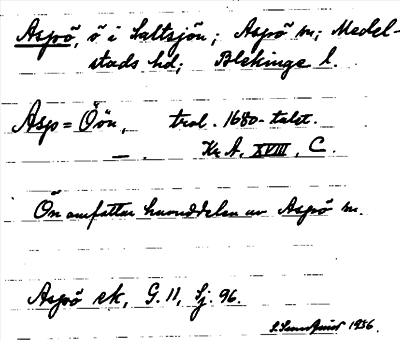 Aspö, ö i Saltsjön; Aspö sn; Medel-
stads hd; Blekinge l.
Asp = Öön, trol. 1680-talet.
Kr A, XVIII, C.
Ön omfattar huvuddelen av Aspö sn.
Aspö ek, G. 11, Sj. 96.
1956.